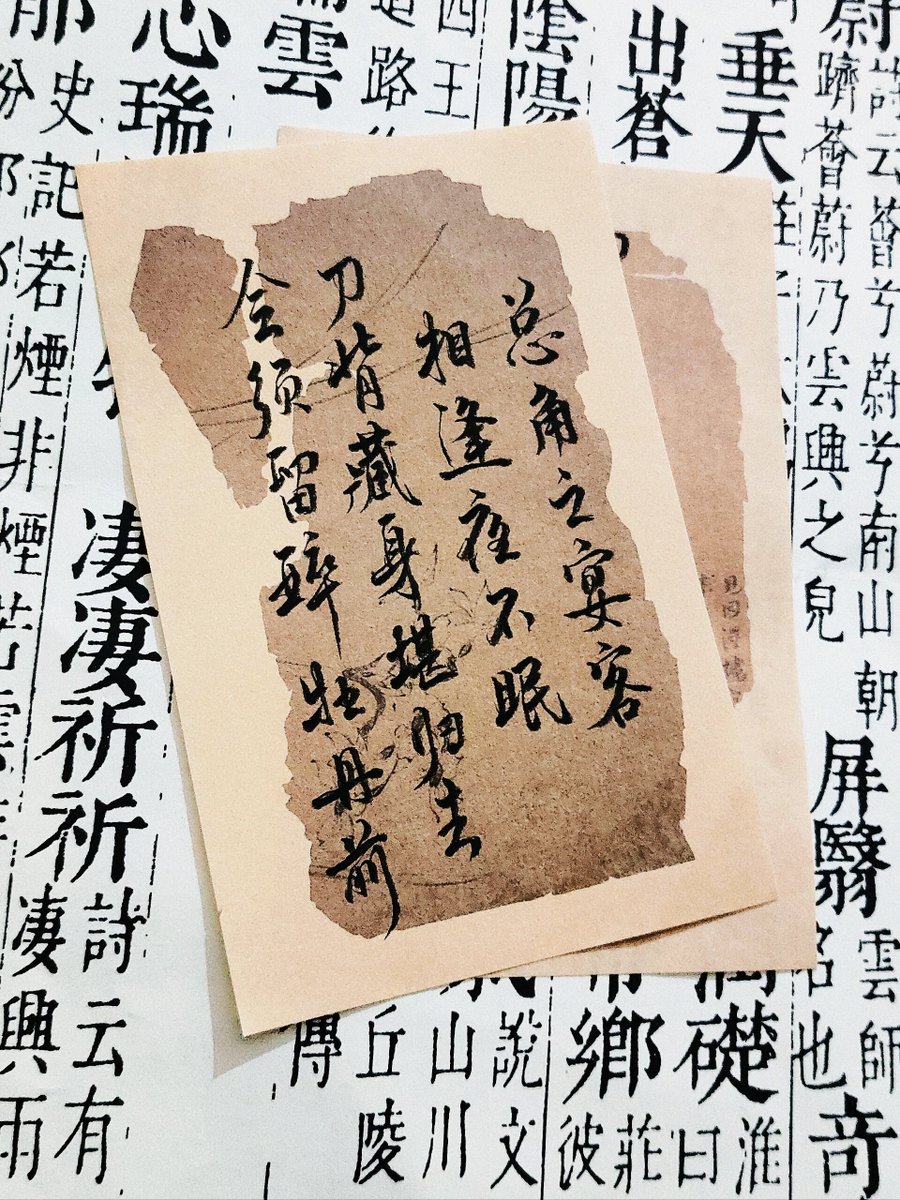 总角之宴客
相逢夜不眠
刀背藏身堪归去
会须留醉牡丹前
蔚
詩云薈兮蔚兮南山朝
隮薈蔚乃雲興之皃
屏翳
雲師
名也
奇
垂天
礎
淮
曰
出蒼
鄉
莊
彼
陰陽
說文
西王
山川
道路
丘陵
雲
傳
心瑞
淒淒祈祈
詩云有
淒興雨
史記若煙非煙若雲